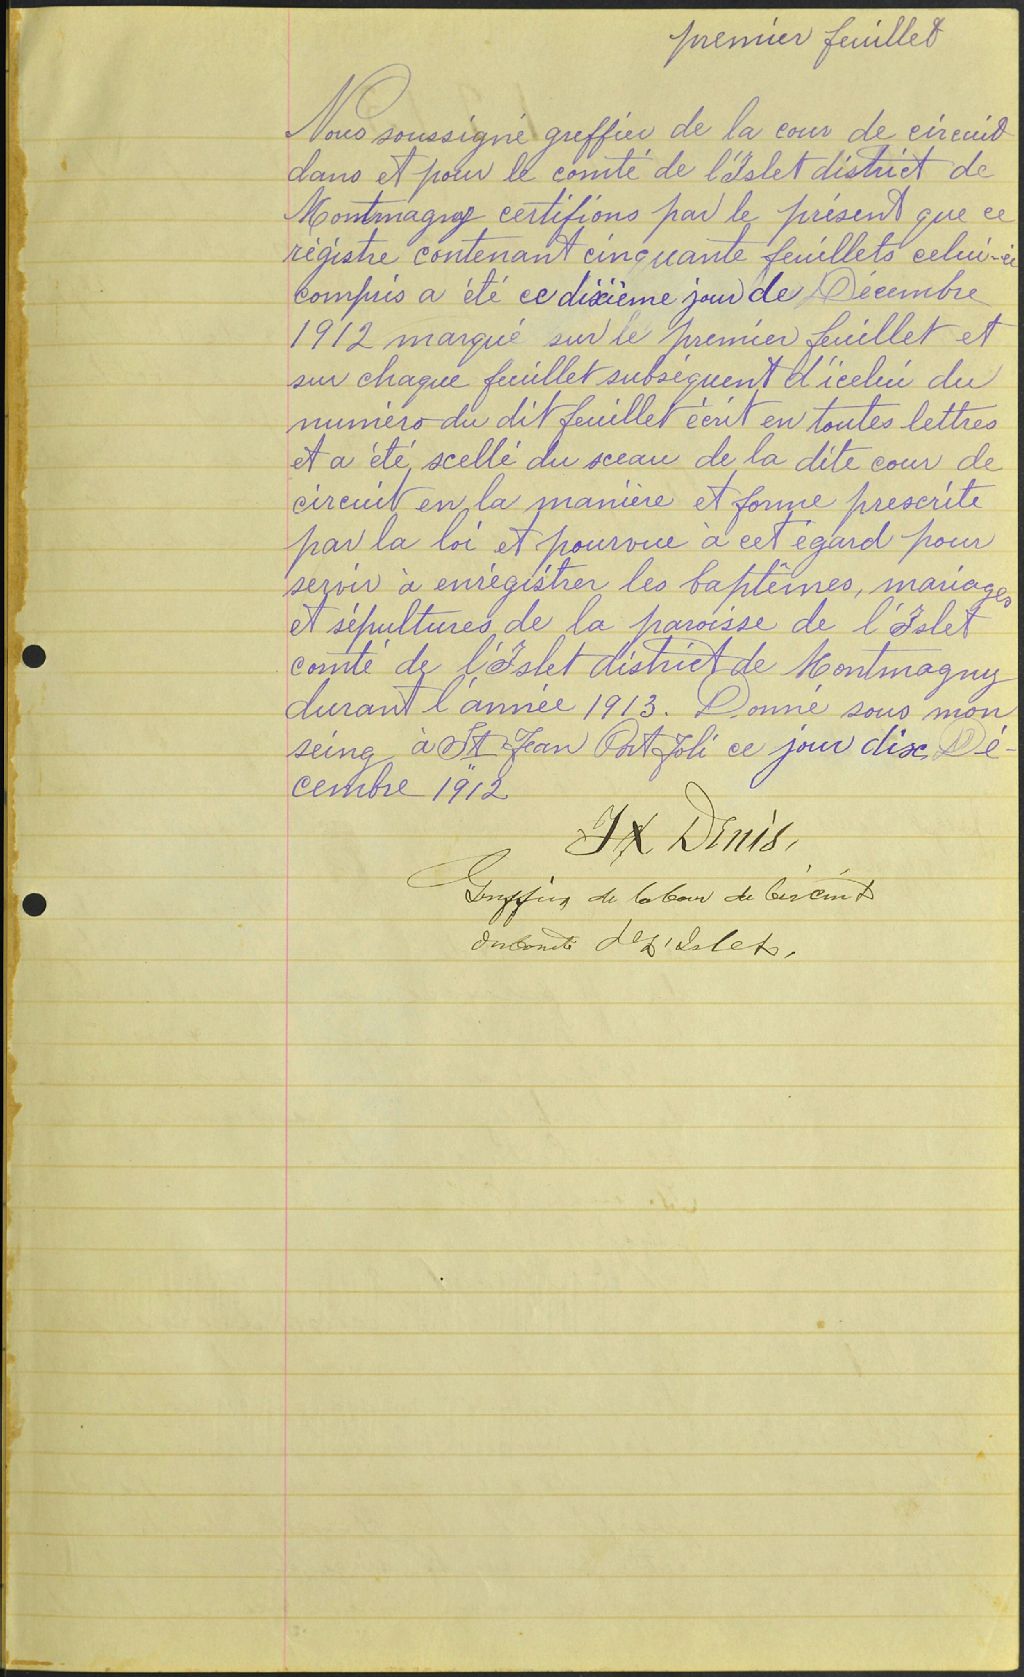 premier feuillet
Nous soussigné greffier de la cour de circuit
dans et pour le comté de l'Islet district de
Montmagny certifions par le présent que ce
régistre contenant cinquante feuillets celui-ci
compris a été ce dixième jour de Décembre
1912 marqué sur le premier feuillet et
sur chaque feuillet subséquent d'icelui du
numéro du dit feuillet écrit en toutes lettres
et a été scellé du sceau de la dite cour de
circuit en la manière et forme prescrite
par la loi et pourvue à cet égard pour
servir à enrégistrer les baptêmes, mariages
et sépultures de la paroisse de l'Islet
comté de l'Islet district de Montmagny
durant l'année 1913. Donné sous mon
seing à St Jean Port Joli ce jour dix Dé-
cembre 1912
JX Denis,
Greffier de la Cour de Circuit
du Comté de L'Islet.